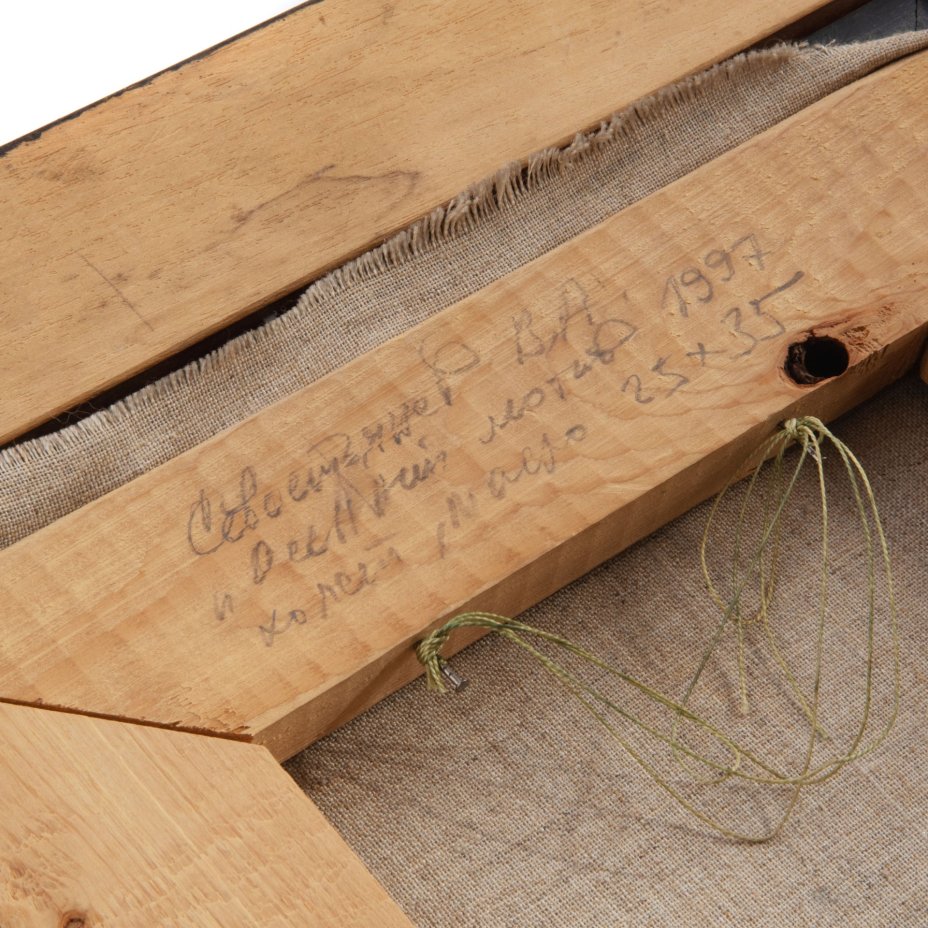 Севостьянов В.А.
Осенний мотив 1997
и холст, масло 25х35